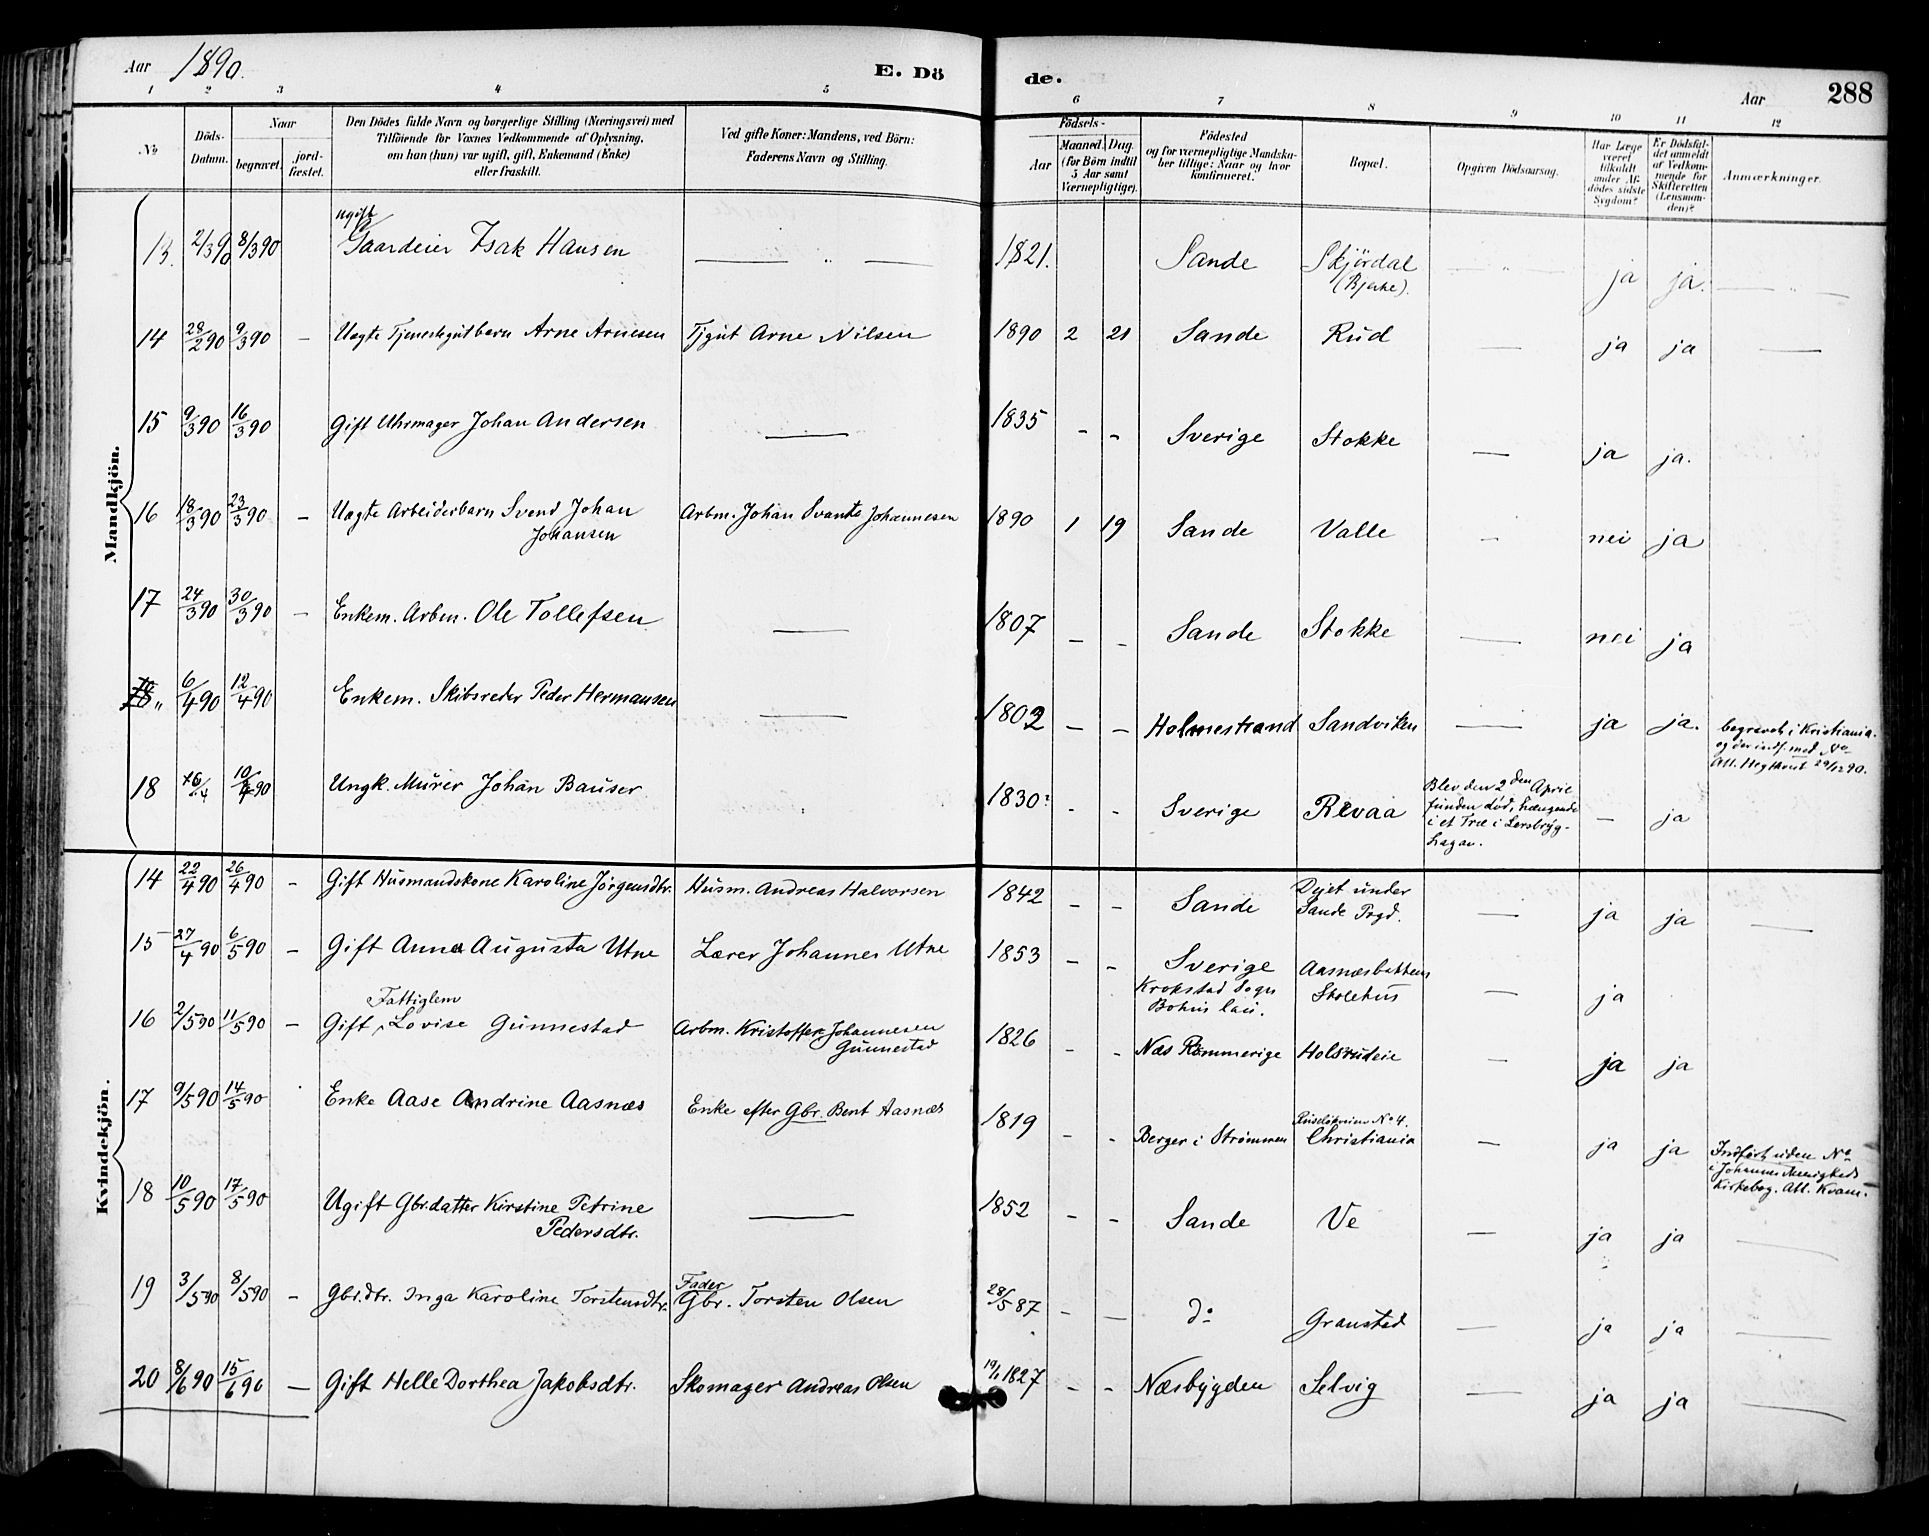 Aar 1890. E. Dö de. Aar 288
1 2 3 4 5 6 7 8 9 10 11 12
№ Döds-Datum. Naar begravet. jordfæstet. Den Dödes fulde Navn og borgerlige Stilling (Næringsvei) med Tilföiende for Voxnes Vedkommende af Oplysning, om han (hun) var ugift, gift, Enkemand (Enke) eller fraskilt. Ved gifte Koner: Mandens, ved Börn: Faderens Navn og Stilling. Födsels- Aar Maaned. Dag. (for Börn indtil 5 Aar samt Værnepligtige). Födested og for værnepligtige Mandskaber tillige: Naar og hvor konfirmeret. Bopæl. Opgiven Dödsaarsag. Har Læge været tilkaldt under Afdödes sidste Sygdom? Er Dödsfaldet anmeldt af Vedkommende for Skifteretten (Lensmanden)? Anmærkninger.
Mandkjön.
13. 2/3 90 8/3 90 ugift Gaardeier Isak Hansen — " — 1821. Sande Skjördal (Bjerke). — " — ja ja. — " —
14 28/2 90 9/3 90 – Uægte Tjenestegutbarn Arne Arnesen Tjgut Arne Nilsen 1890 2 21 Sande Rud — ja ja —
15 9/3 90 16/3 90 Gift Uhrmager Johan Andersen — 1835 – – Sverige Stokke — ja ja.
16 18/3 90 23/3 90 – Uægte Arbeiderbarn Svend Johan Johansen Arbm. Johan Svante Johannesen 1890 1 19 Sande Valle – nei ja
17 24/3 90 30/3 90 – Enkem. Arbm. Ole Tollefsen — 1807 – – Sande Stokke — nei ja
18 " 6/4 90 12/4 90 Enkem. Skibsreder Peder Hermansen — 1802 – – Holmestrand Sandviken — ja ja. begravet i Kristiania og der indf. med No Att. Hegthout 29/12 90.
18 10/4 90 Ungk. Murer Johan Bauser 1830? – – Sverige Revaa Blev den 2den April funden död, hængende i et Træ i Lersbryghagan. – ja
Kvindekjön.
14 22/4 90 26/4 90 – Gift Husmandskone Karoline Jörgensdtr. Husm. Andreas Halvorsen 1842 – – Sande under Sande Prgd. — ja ja —
15 27/4 90 6/5 90 – Gift Anna Augusta Utne Lærer Johannes Utne 1853 – – Sverige Krokstad Sogn Bohus Skolehus — ja
16 2/5 90 11/5 90 – Gift Fattiglem Lovise Gunnestad Arbm. Kristoffer Johannesen Gunnestad 1826 – – Næs Rommerige Holsrudeie – ja ja
17 9/5 90 14/5 90 Enke Aase Andrine Aasnæs Enke efter Gbr. Bent Aasnæs 1819 – – Berger i Strömmen No 4. Christiania – ja ja Indfört uden No i Johannes Menigheds Kirkebog. Att. Kvam.
18 10/5 90 17/5 90 Ugift Gbrdatter Kirstine Petrine Pedersdtr. — 1852 – – Sande Ve — ja ja —
19 3/5 90 8/5 90 – Gbr.dtr. Inga Karoline Torstensdtr. Fader Gbr. Torsten Olsen 28/5 87 – – do Granstad — ja ja —
20 8/6 90 15/6 90 — Gift Helle Dorthea Jakobsdtr. Skomager Andreas Olsen 19/1 1827 – – Næsbygden Selvig — ja ja —